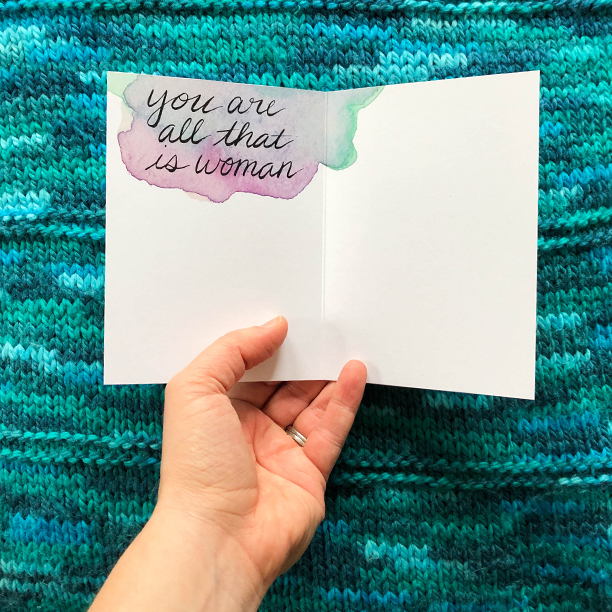 you are
all that
is woman